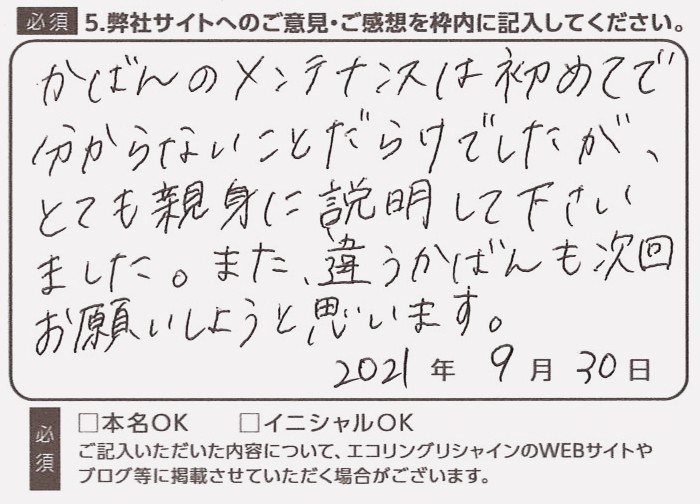 必須 5.弊社サイトへのご意見・ご感想を枠内に記入してください。
かばんのメンテナンスは初めてで
分からないことだらけでしたが、
とても親身に説明して下さい
ました。また、違うかばんも次回
お願いしようと思います。
2021年 9月 30日
必須 □本名OK □イニシャルOK
ご記入いただいた内容について、エコリングリシャインのWEBサイトや
ブログ等に掲載させていただく場合がございます。